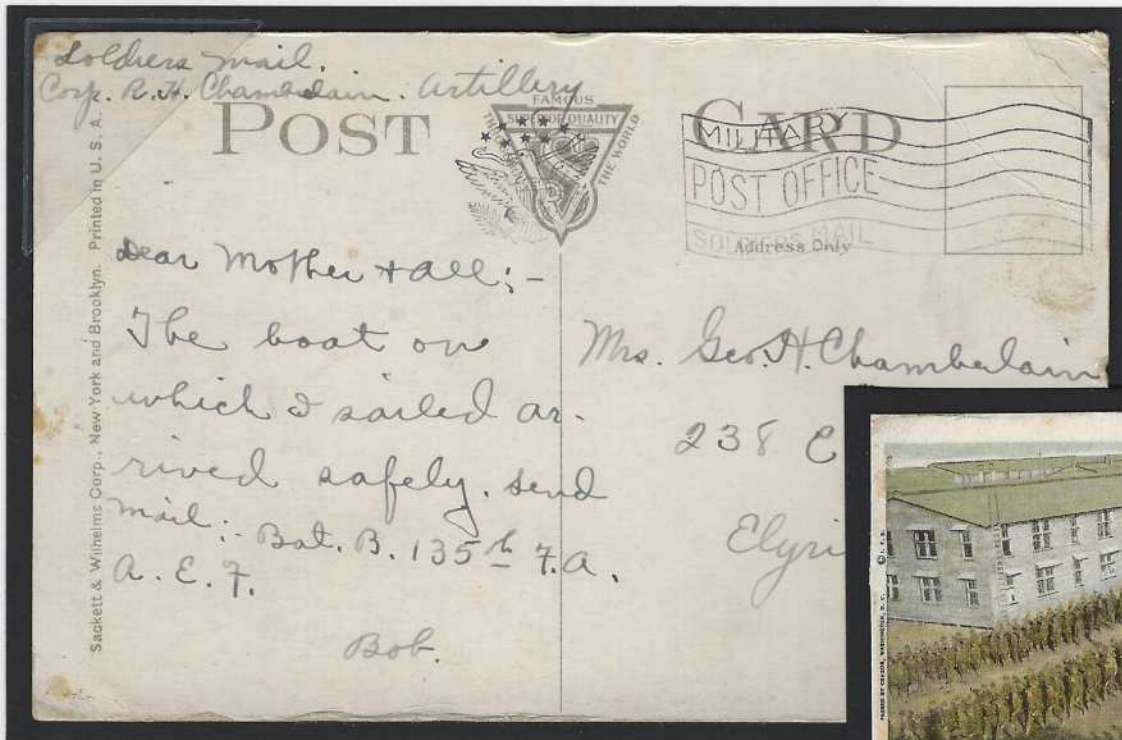 Soldiers Mail.
Corp. R. H. Chamberlain. Artillery
POST CARD
FAMOUS
SUPERIOR QUALITY
THE WORLD
MILITARY
POST OFFICE
SOLDIERS MAIL
Address Only
Sackett & Wilhelms Corp., New York and Brooklyn. Printed in U. S. A.
Dear Mother + all;-
The boat on
which I sailed ar-
rived safely. Send
mail:- Bat. B. 135th F.A.
A. E. F.
Bob.
Mrs. Geo. H. Chamberlain
238 E
Elyri
PASSED BY CENSOR, WASHINGTON, D. C.